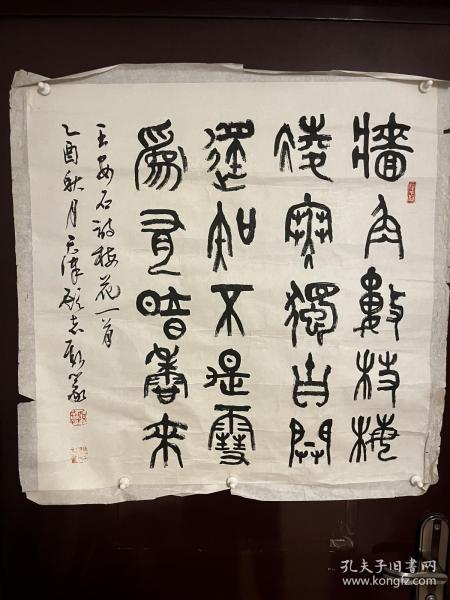 牆角數枝梅
凌寒獨自開
遥知不是雪
爲有暗香來
王安石詩梅花一首
乙酉秋月天津顾志新篆
孔夫子旧书网
www.kongfz.com